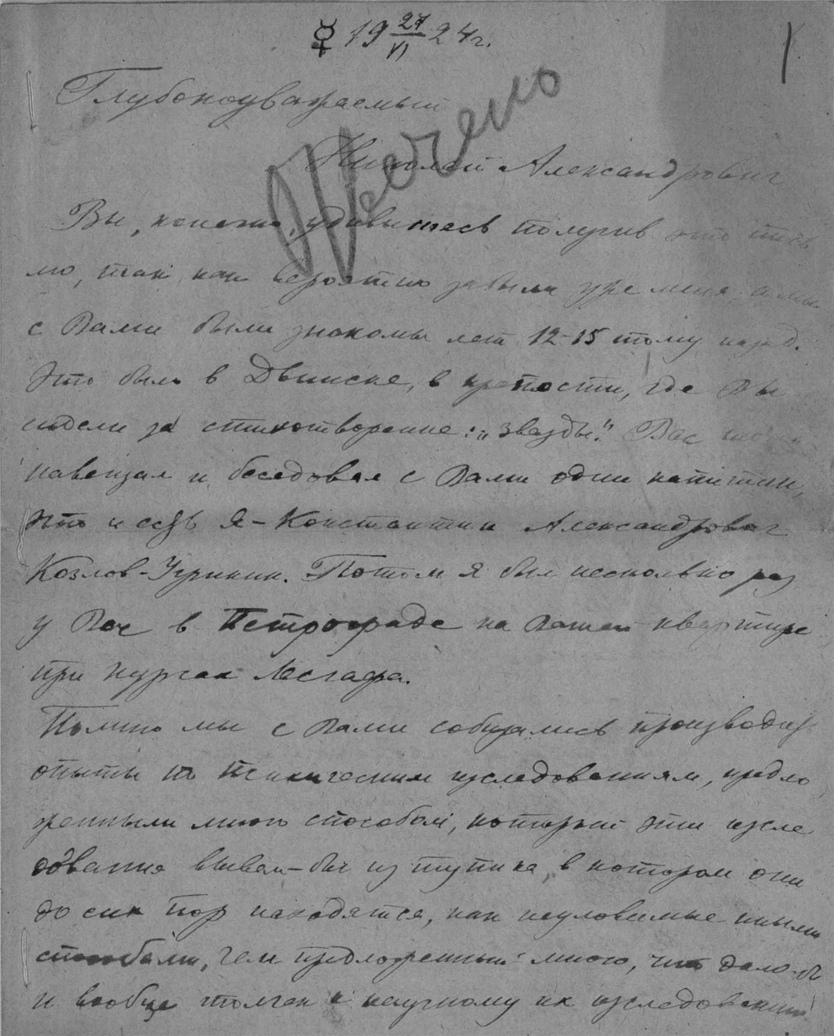 ☿ 19 27/VI 24 г.
1
Глубокоуважаемый
Отвечено
Николай Александрович
Вы, конечно, удивитесь получив это пись
мо, так как вероятно забыли уже меня, а мы
с Вами были знакомы лет 12-15 тому назад.
Это было в Двинске, в крепости, где Вы
сидели за стихотворение: „Звезды“. Вас
навещал и беседовал с Вами один капитан,
это и есть Я – Константин Александрович
Козлов-
Потом Я был несколько раз
у Вас в Петрограде на Вашей квартире
при курсах Лесгафта.
Помню мы с Вами собирались производить
опыты по психическим изследованиям, предло
женным мною способом, который эти изсле
дования вывел-бы из тупика, в котором они
до сих пор находятся, как неуловимые иными
способами, чем предложенный мною, что дало-бы
и вообще толчек к научному их изследованию